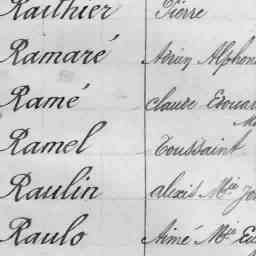 Raithier Pierre
Ramaré Adrien Alphon
Ramé Claude Edouar
Ramel Toussaint
Raulin alexis Mie Jo
Raulo Aimé Mie Eu